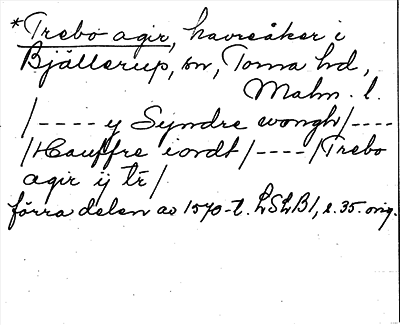 *Trebo agir, havreåker i
Bjällerup, sn, Torna hd,
Malm. l.
/---- y Syndre wongh/----
/Hauffre iordt/----/Trebo
agir ij tr/
förra delen av 1570-t. LSLB1, s. 35. orig.